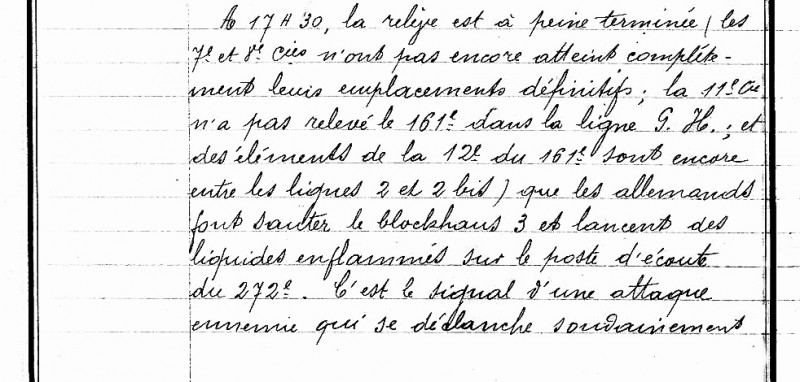 A 17 H 30, la relève est à peine terminée ( les
7e et 8e Cies n'ont pas encore atteint complète-
ment leurs emplacements définitifs ; la 11e Cie
n'a pas relevé le 161e dans la ligne G. H. ; et
des éléments de la 12e du 161e sont encore
entre les lignes 2 et 2 bis ) que les allemands
font sauter le blockhaus 3 et lancent des
liquides enflammés sur le poste d'écoute
du 272e. C'est le signal d'une attaque
ennemie qui se déclanche soudainement